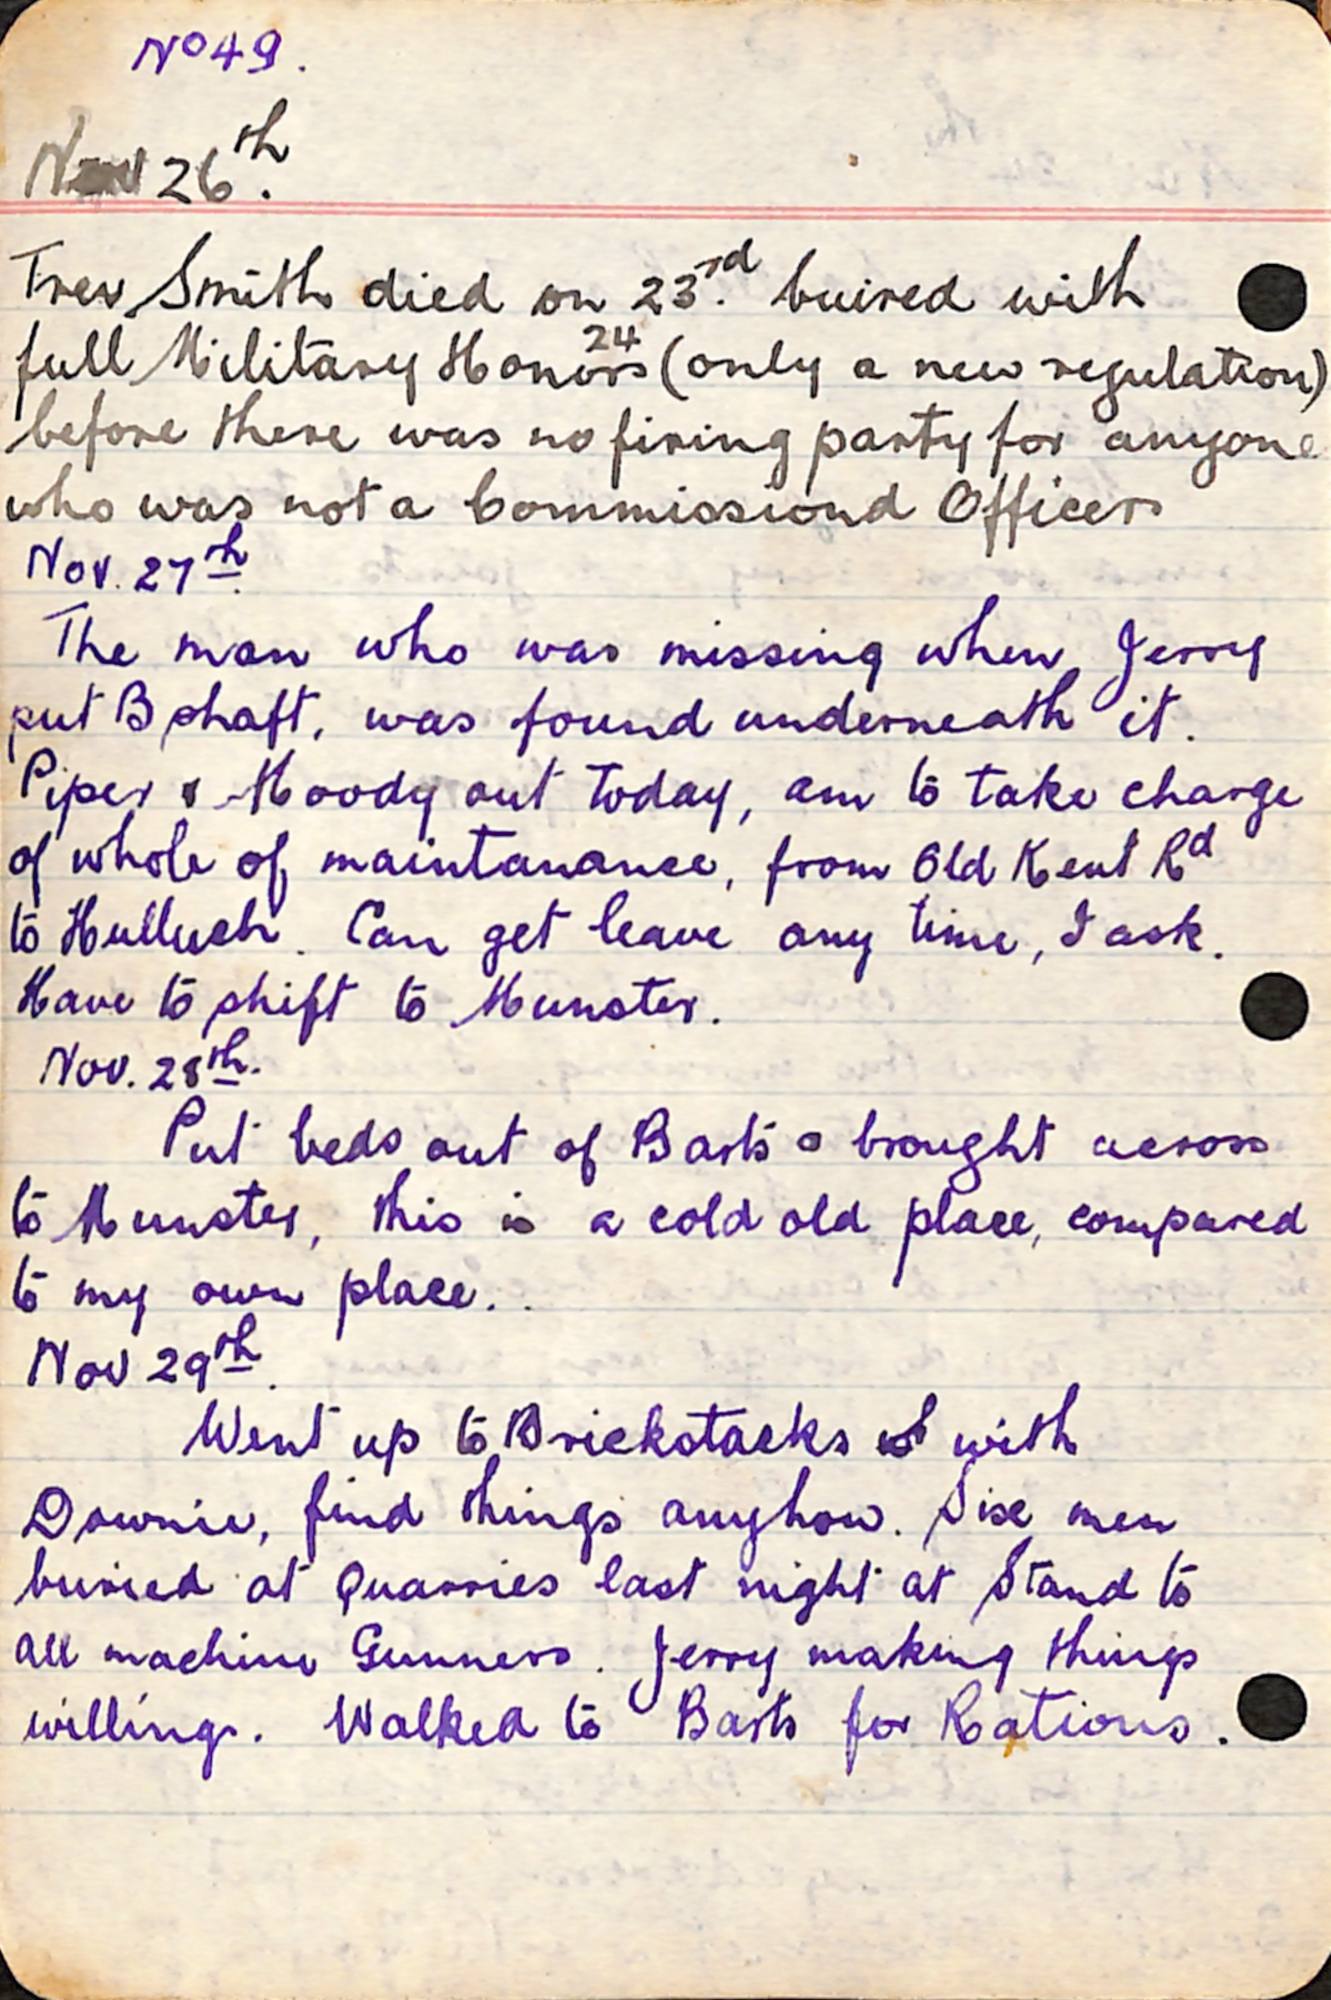 No 49.
Nov 26th.
Trev Smith died on 23rd. buired with
24
full Military Honors (only a new regulation)
before there was no firing party for anyone
who was not a Commissiond Officer
Nov. 27th.
The man who was missing when Jerry
put B shaft, was found underneath it.
Piper & Moody out today, am to take charge
of whole of maintanance, from Old Kent Rd
to Hulluch. Can get leave any time, I ask.
Have to shift to Munster.
Nov. 28th.
Put beds out of Barts & brought across
to Munster, this is a cold old place, compared
to my own place..
Nov 29th.
Went up to Brickstacks with
Downie, find things anyhow. Sixe men
buried at Quarries last night at Stand to
all machine Gunners. Jerry making things
willing. Walked to Barts for Rations.